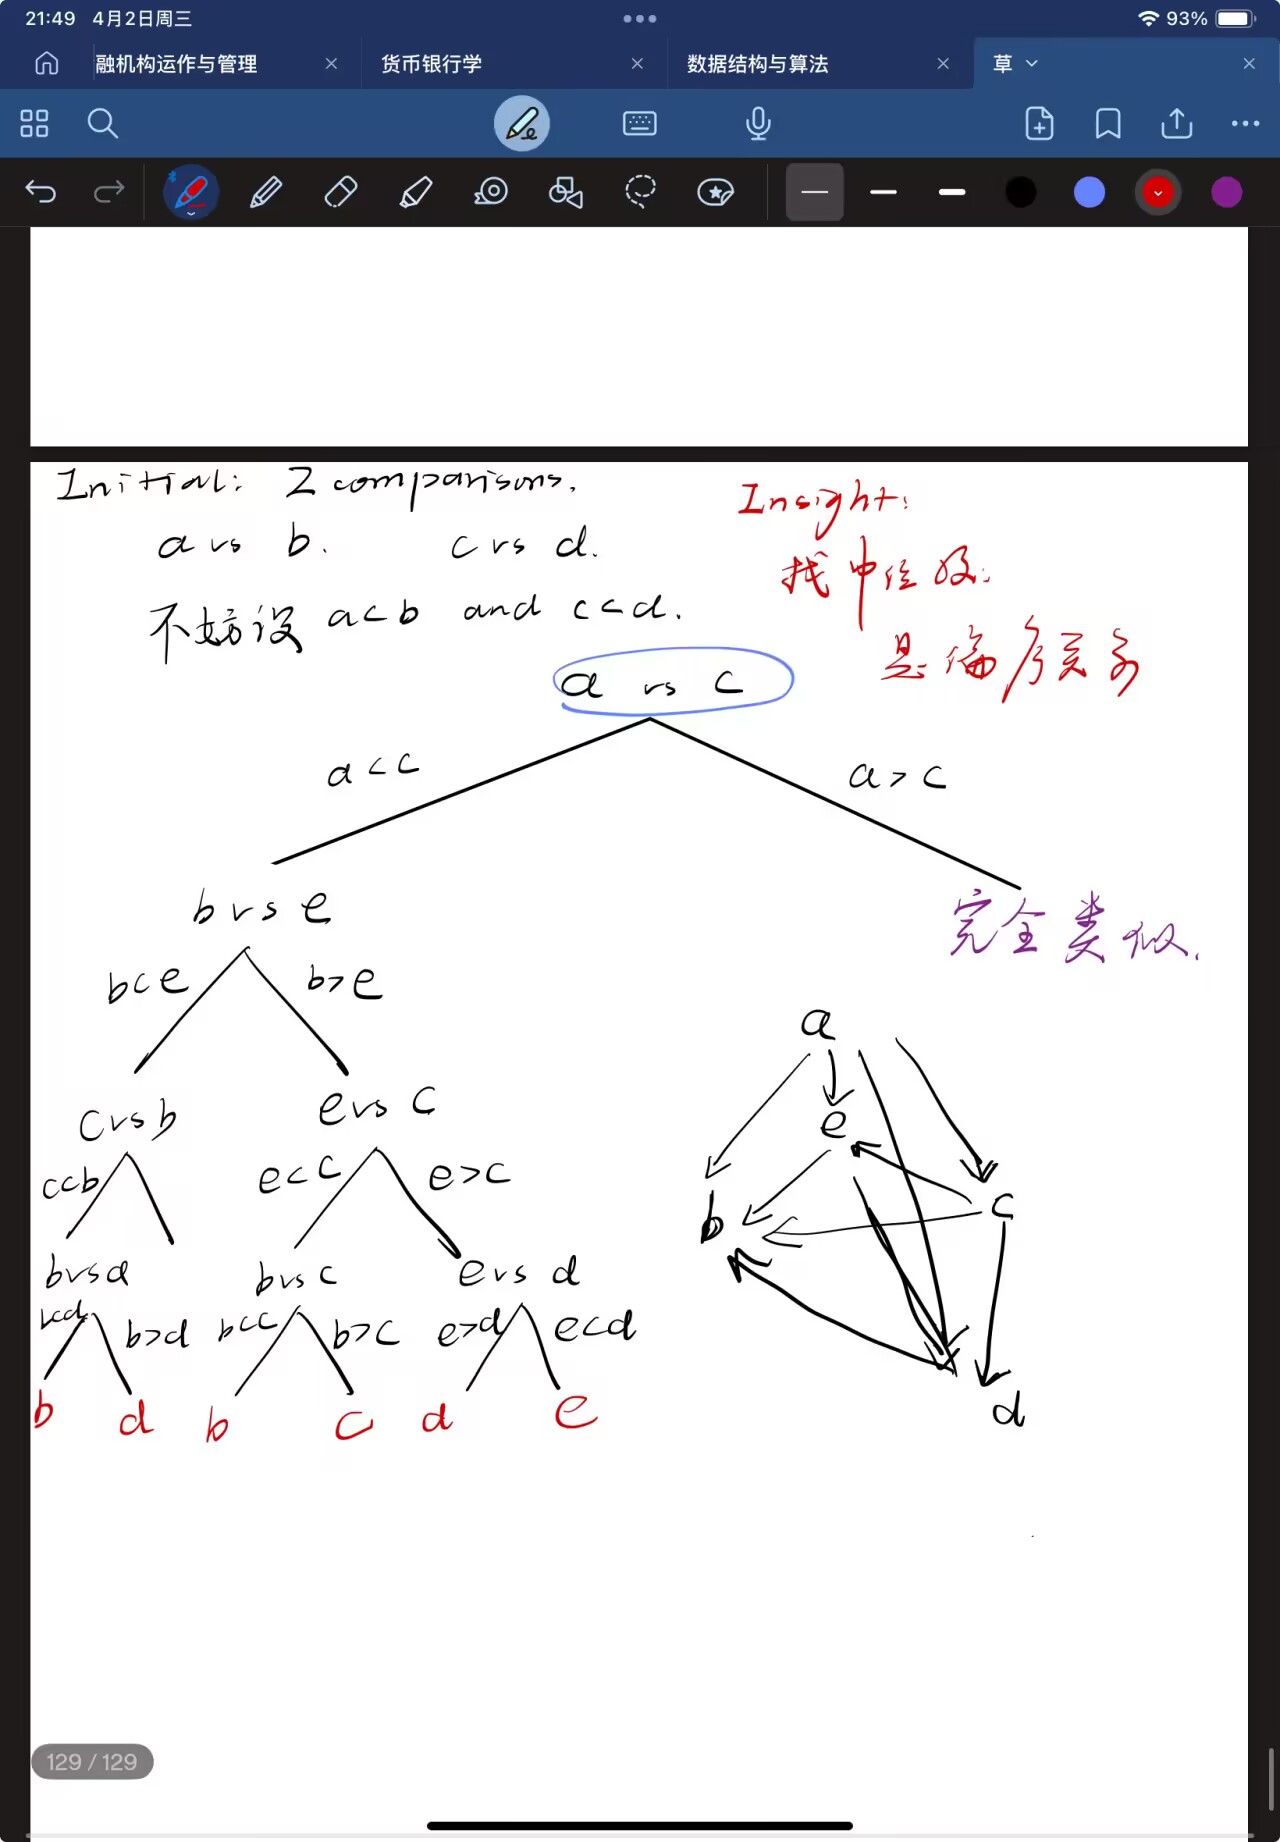 21:49 4月2日周三
93%
融机构运作与管理
货币银行学
数据结构与算法
草
Initial: 2 comparisons.
a vs b. c vs d.
不妨设 a<b and c<d.
Insight:
找中位数:
是偏序关系
a vs c
a<c
a>c
b vs e
完全类似.
b<e
b>e
c vs b
e vs c
c<b
e<c
e>c
b vs d
b vs c
e vs d
b<d
b>d
b<c
b>c
e>d
e<d
b
d
b
c
d
e
a
e
b
c
d
129 / 129